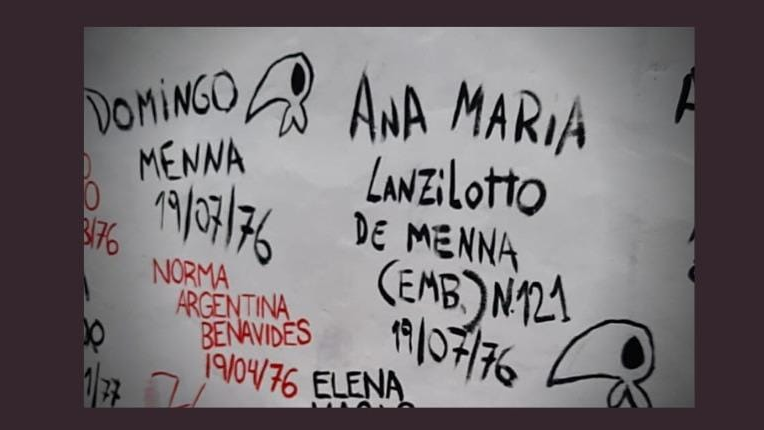 DOMINGO
MENNA
19/07/76
ANA MARIA
LANZILOTTO
DE MENNA
(EMB.) N.121
19/07/76
NORMA
ARGENTINA
BENAVIDES
19/04/76
ELENA